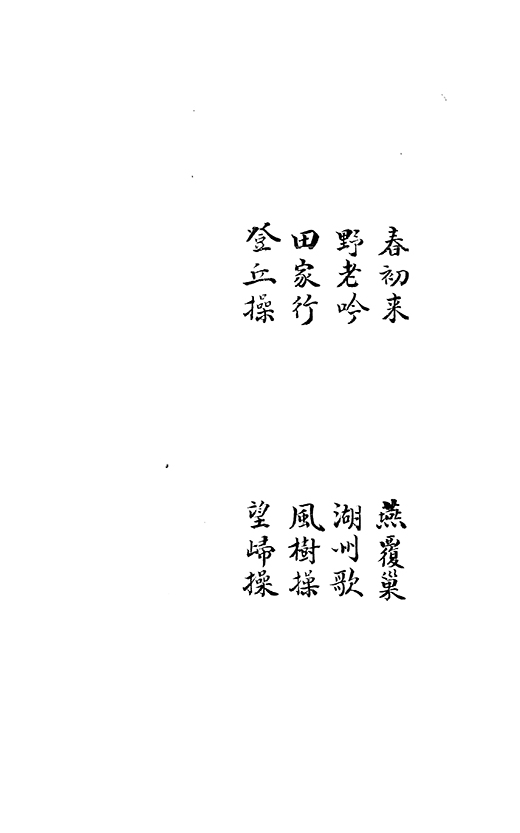 春初来
燕覆巢
野老吟
湖州歌
田家行
風樹操
登丘操
望歸操